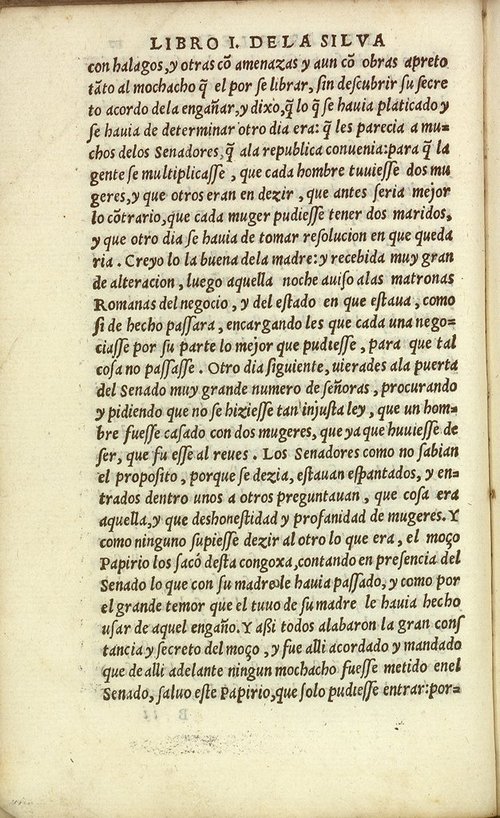 LIBRO I. DE LA SILVA
con halagos, y otras cõ amenazas y aun cõ obras apreto
tãto al mochacho q̃ el por se librar, sin descubrir su secre
to acordo dela engañar, y dixo, q̃ lo q̃ se hauia platicado y
se hauia de determinar otro dia era: q̃ les parecia a mu=
chos delos Senadores, q̃ ala republica conuenia: para q̃ la
gente se multiplicasse, que cada hombre tuuiesse dos mu
geres, y que otros eran en dezir, que antes seria mejor
lo cõtrario, que cada muger pudiesse tener dos maridos,
y que otro dia se hauia de tomar resolucion en que queda
ria. Creyo lo la buena dela madre: y recebida muy gran
de alteracion, luego aquella noche auiso alas matronas
Romanas del negocio, y del estado en que estaua, como
si de hecho passara, encargando les que cada una nego=
ciasse por su parte lo mejor que pudiesse, para que tal
cosa no passasse. Otro dia siguiente, uierades ala puerta
del Senado muy grande numero de señoras, procurando
y pidiendo que no se hiziesse tan injusta ley, que un hom=
bre fuesse casado con dos mugeres, que ya que huuiesse de
ser, que fu esse al reues. Los Senadores como no sabian
el proposito, porque se dezia, estauan espantados, y en=
trados dentro unos a otros preguntauan, que cosa era
aquella, y que deshonestidad y profanidad de mugeres. Y
como ninguno supiesse dezir al otro lo que era, el moço
Papirio los sacô desta congoxa, contando en presencia del
Senado lo que con su madre le hauia passado, y como por
el grande temor que el tuuo de su madre le hauia hecho
usar de aquel engaño. Y aßi todos alabaron la gran cons
tancia y secreto del moço, y fue alli acordado y mandado
que de alli adelante ningun mochacho fuesse metido enel
Senado, saluo este Papirio, que solo pudiesse entrar: por=